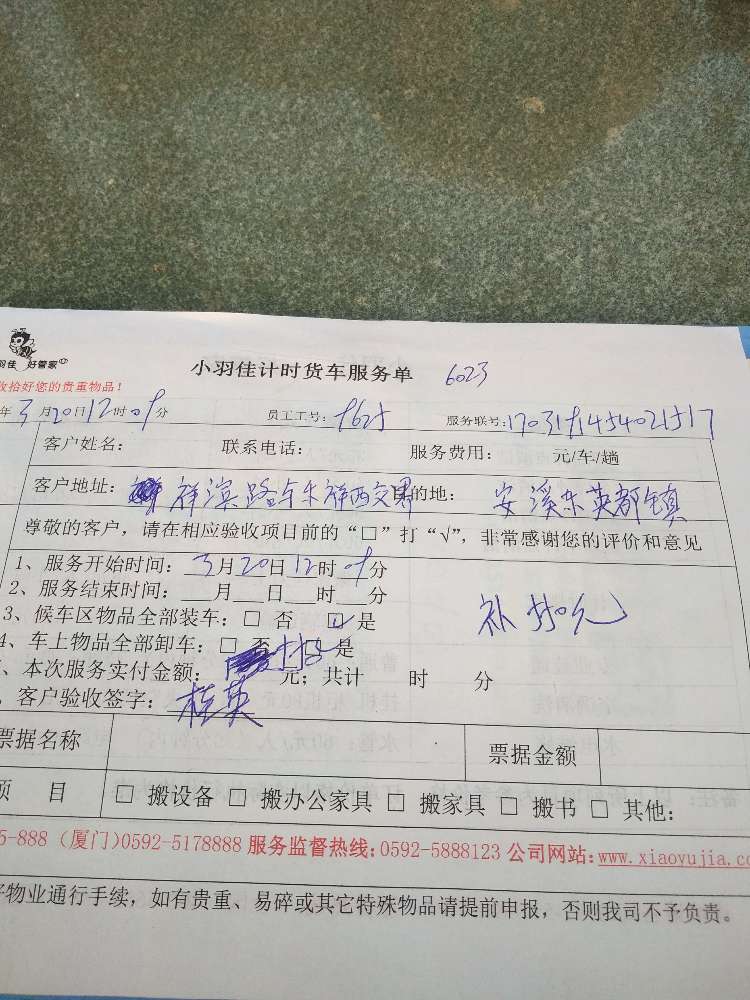 小羽佳计时货车服务单 6023
羽佳 好管家
收拾好您的贵重物品！
年 3月20日12时09分 员工工号： 服务联号：
客户姓名： 联系电话： 服务费用： 元/车/趟
客户地址： 祥滨路 祥西交界 目的地： 安溪东英都镇
尊敬的客户，请在相应验收项目前的“□”打“√”，非常感谢您的评价和意见
1、服务开始时间：3月20日12时09分
2、服务结束时间： 月 日 时 分
3、候车区物品全部装车：□ 否 ☑ 是
4、车上物品全部卸车：□ 否 □ 是
、本次服务实付金额： 元；共计 时 分
补 元
、客户验收签字：桂英
票据名称 票据金额
项 目 □ 搬设备 □ 搬办公家具 □ 搬家具 □ 搬书 □ 其他：
5-888（厦门)0592-5178888 服务监督热线:0592-5888123 公司网站:www.xiaoyujia.co
好物业通行手续，如有贵重、易碎或其它特殊物品请提前申报，否则我司不予负责。